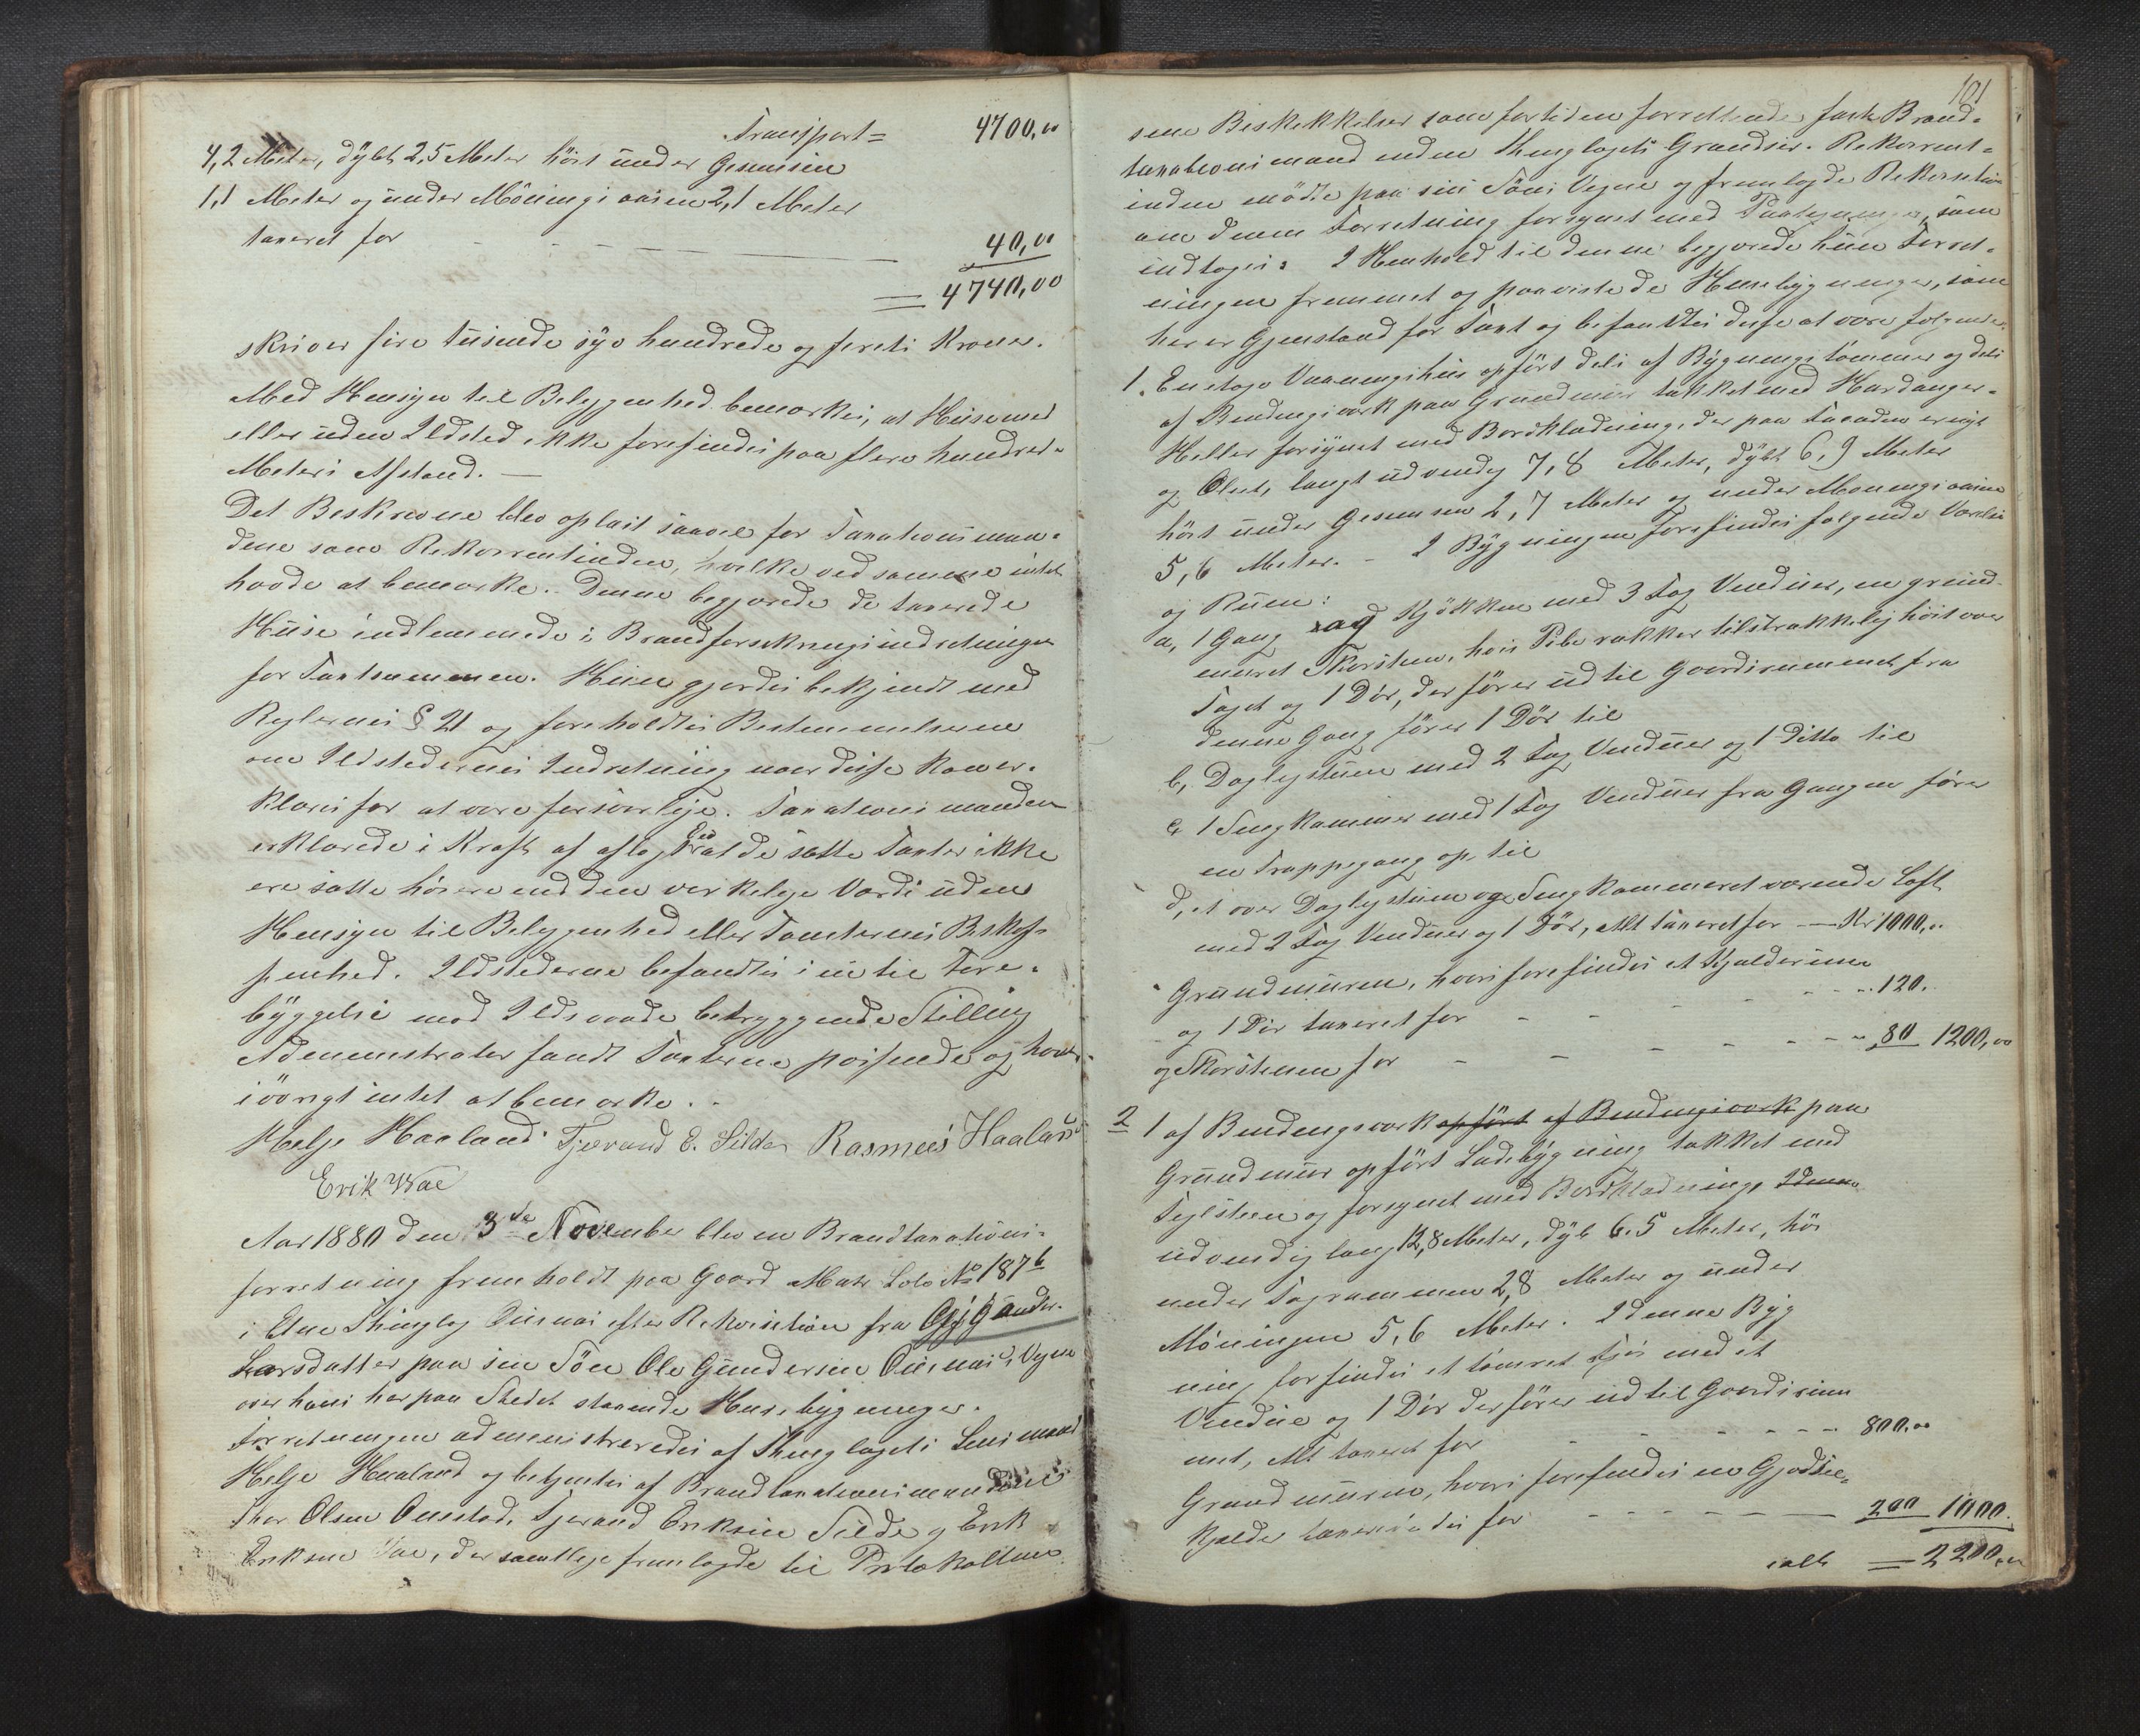 Transport = 4700,00
4,2 Meter, dybt 2,5 Meter höit under Gesimsen
1,1 Meter og under Möningsaasen 2,1 Meter
taxeret for - - - 40,00
= 4740,00
skriver fire tusinde syv hundrede og firti Kroner.
Med Hensyn til Beliggenhed bemærkes, at Huse med
eller uden Ildsted ikke forefindes paa flere hundred-
Meters Afstand. -
Det Beskrevne blev oplæst saavel for Taxationsmæn-
dene som Rekvirentinden, hvilke ved samme intet
havde at bemærke. Denne begjærede de taxerede
Huse indlemmede i Brandforsikringsindretningen
for Taxtsummen. Hun gjordes bekjendt med
Reglernes § 21 og foreholdtes Bestemmelserne
om Ildstedernes Indretning naar disse kan er-
klæres for at være forsvarlige. Taxationsmændene
erklærede i Kraft af aflagt Eed at de satte Taxter ikke
ere satte höiere end den virkelige Værdi uden
Hensyn til Beliggenhed eller Tomternes Beskaf-
fenhed. Ildstederne befandtes i en til Fore-
byggelse mod Ildsvaade betryggende Stilling
Administrator fandt Taxterne passende og havde
iövrigt intet at bemærke. -
Helje Haaland Tjerand E. Silde Rasmus Haaland
Erik Vae
Aar 1880 den 3de November blev en Brandtaxations-
forretning fremholdt paa Gaard Matr Löbe No 187b
i Etne Thinglag efter Rekvisition fra
Larsdatter paa sin Sön Ole Gundersen Vegne
over hans her paa Stedet staaende Husebygninger.
Forretningen administreredes af Thinglagets Lensmand
Helje Haaland og betjentes af Brandtaxationsmændene
Thor Olsen Tjerand Eriksen Silde og Erik
Eriksen Vae, der samtlige fremlagde til Protokollen
101
sine Beskikkelser som for tiden forrettende faste Brand-
taxationsmænd inden Thinglagets Grændser. Rekvirent-
inden mödte paa sin Söns Vegne og fremlagde Rekvisition
om denne Forretning forsynet med Paategninger, som
indtages. I Henhold til denne begjærede hun Forret-
ningen fremmet og paaviste de Husebygninger, som
her er Gjenstand for Taxt og befandtes disse at være følgende:
1. En etage Vaaningshus opfört dels af Bygningstömmer og dels
af Bindingsværk paa Grundmur takket med Hardanger-
Heller forsynet med Bordklædning, der paa Facaden er
og Oliet, langt udvendig 7,8 Meter, dybt 6,9 Meter
höit under Gesimsen 2,7 Meter og under Möningsaasen
5,6 Meter. - I Bygningen forefindes følgende Værelser
og Rum:
a, 1 Gang og Kjökken med 3 Fag Vinduer, en grund-
muret Skorsten, hvis Pibe rækker tilstrækkelig höit over
Taget og 1 Dör, der förer ud til Gaardsrummet fra
denne Gang förer 1 Dör til
b, Dagligstuen med 2 Fag Vinduer og 1 Ditto til
c, 1 Sengkammer med 1 Fag Vinduer fra Gangen förer
en Trappegang op til
d, et over Dagligstuen og Sengkammeret værende Loft
med 2 Fag Vinduer og 1 Dör, Alt taxeret for - Kr 1000,00
Grundmuren, hvori forefindes et Kjælderrum
og 1 Dör taxeret for - - - 120.
og Skorstenen for - - - 80 1200,00
2 1 af Bindingsværk opfört af Bindingsværk paa
Grundmur opfört Ladebygning takket med
Teglsteen og forsynet med Bordklædning,
udvendig lang 12,8 Meter, dyb 6.5 Meter, höi
under Tagrammen 2,8 Meter og under
Möningen 5,6 Meter. I denne Byg
ning forfindes et tömret Fjös med et
Vindue og 1 Dör der förer ud til Gaardsrum
met, Alt taxeret for - - - 800,00
Grundmuren, hvori forefindes en Gjödsel-
kjelder taxeredes for - - - 200 1000.
ialt = 2200,00